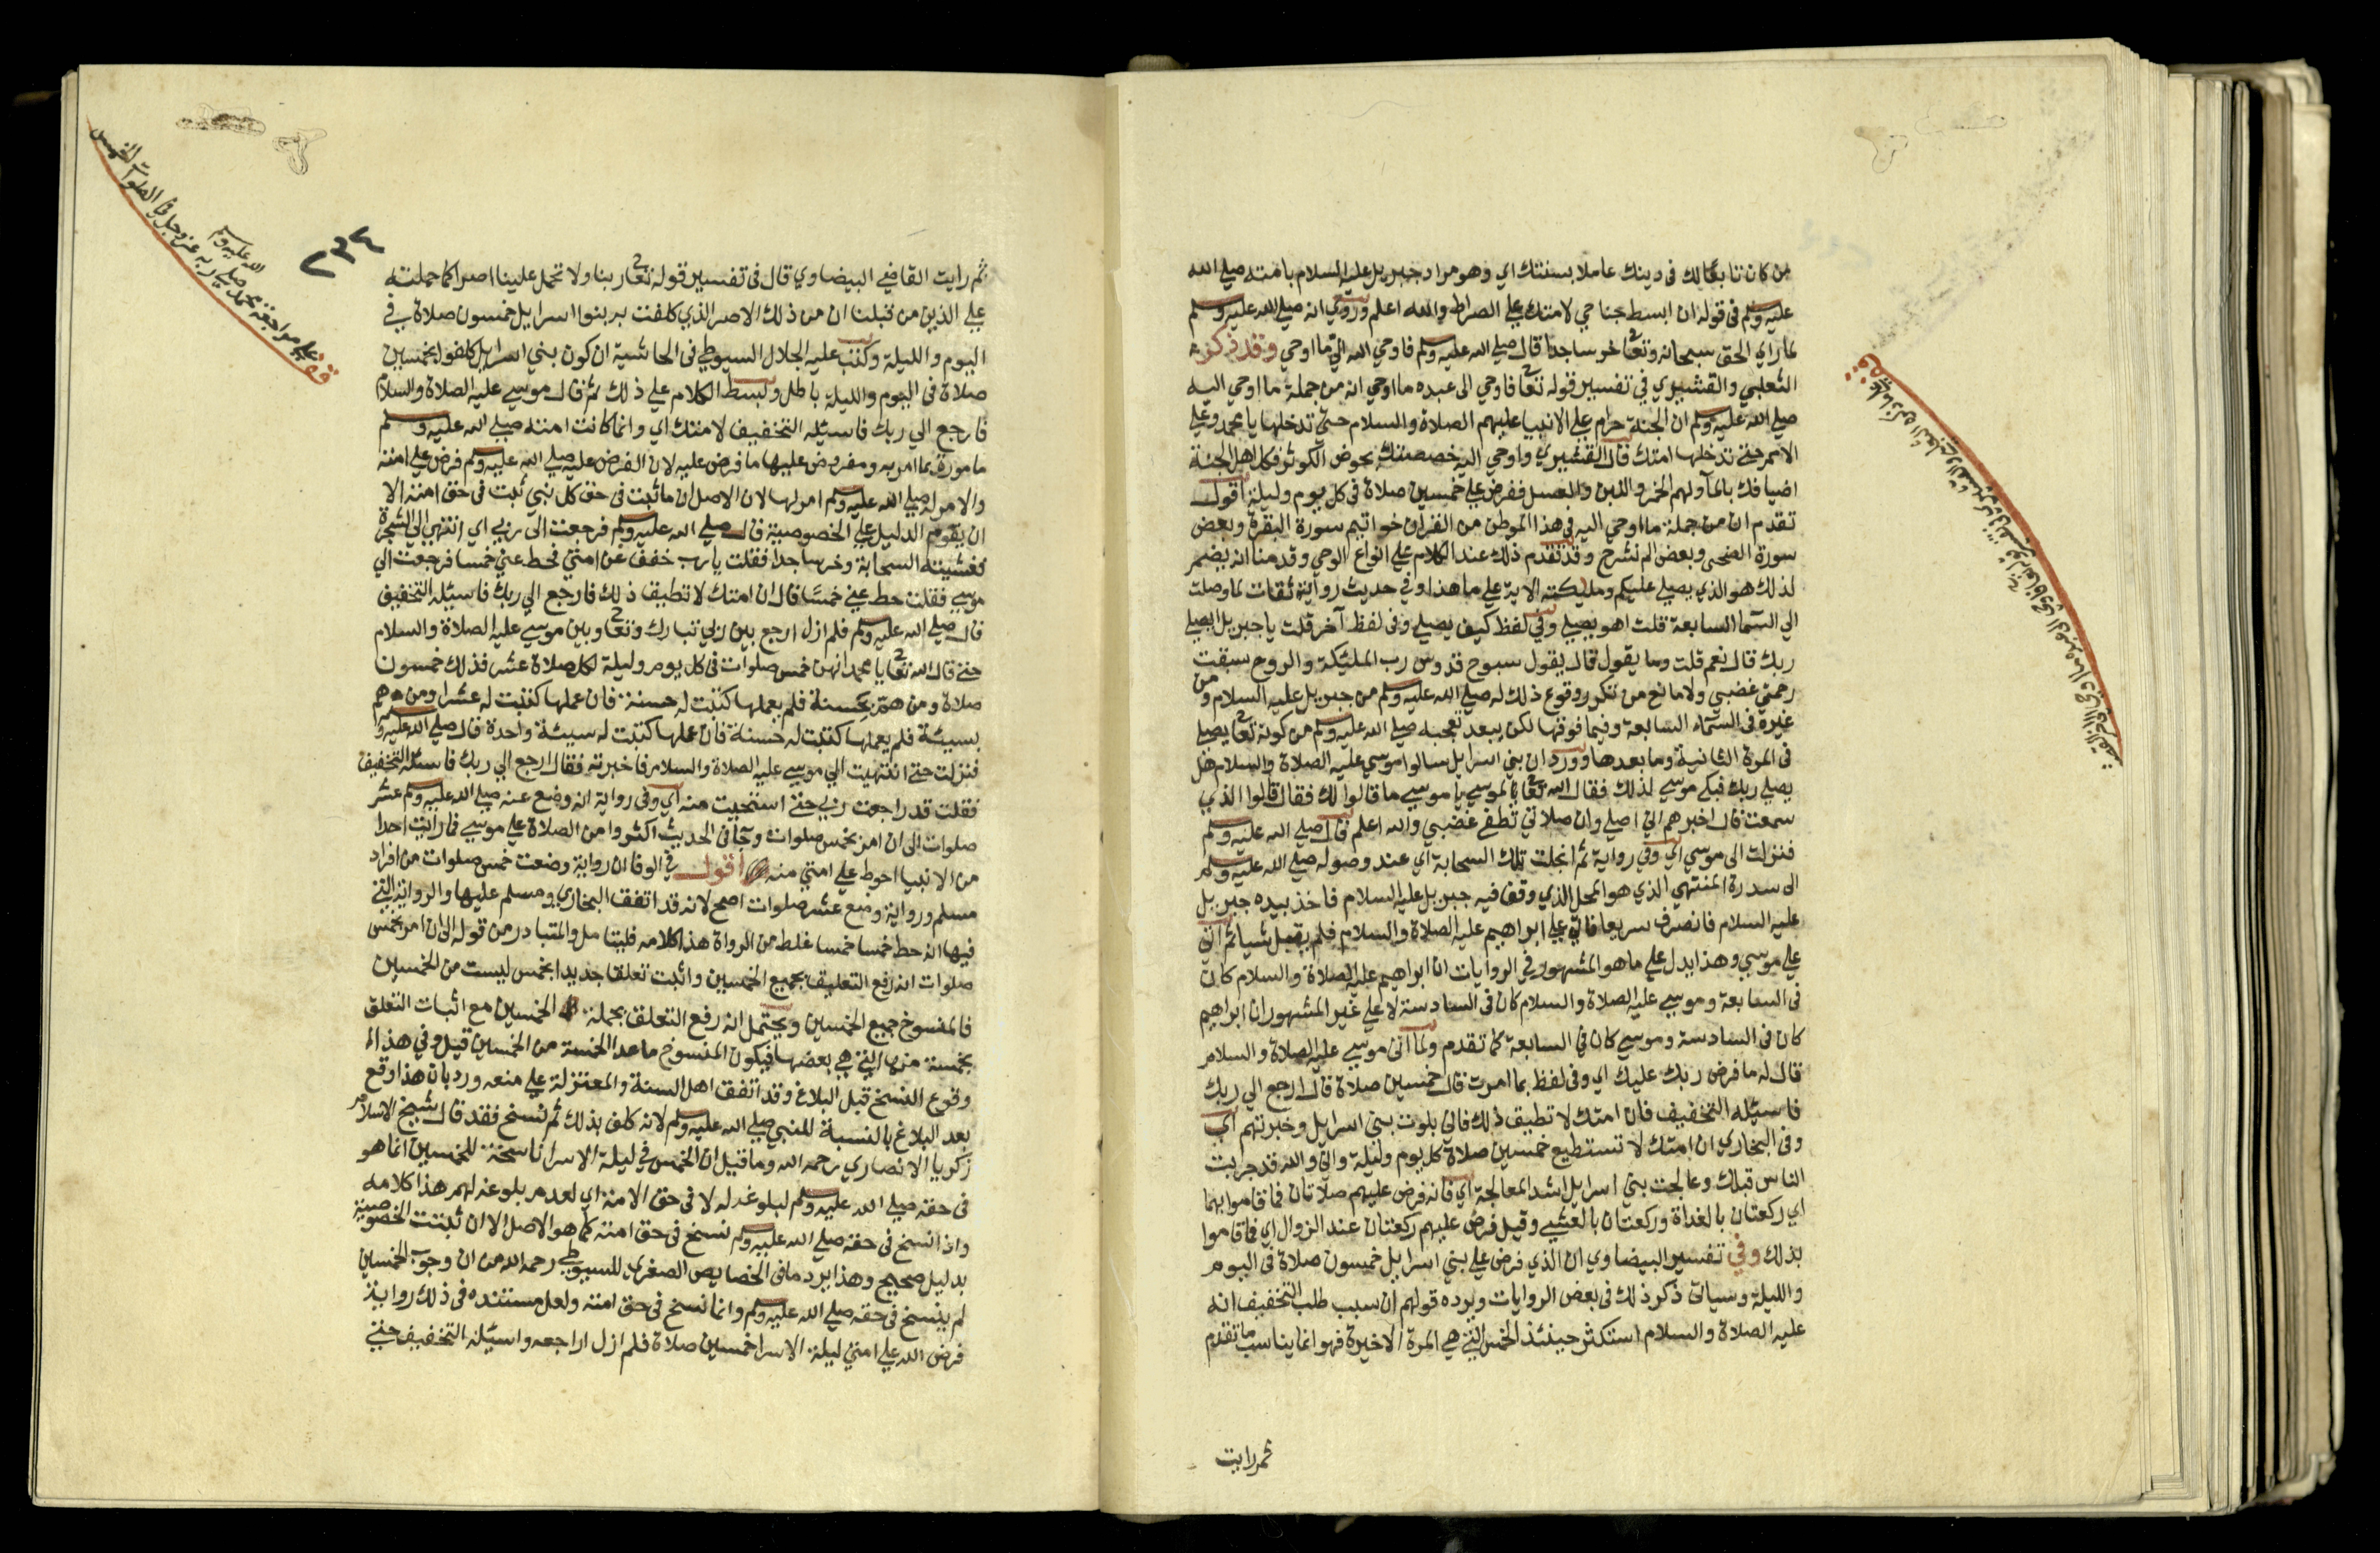 من كان تابعا لك في دينك عاملا بسنتك اي وهو مراد جبريل عليه السلام بامته صلي الله
عليه وسلم في قوله ان ابسط جناحي لامتك علي الصراط والله اعلم وروي انه صلي الله عليه وسلم
لما راي الحق سبحانه وتعا خر ساجدا قال صلي الله عليه وسلم فاوحي الله الي ما اوحي وقد ذكر
الثعلبي والقشيري في تفسير قوله تعا فاوحي الى عبده ما اوحي انه من جملة ما اوحي اليه
صلي الله عليه وسلم ان الجنة حرام علي الانبيا عليهم الصلاة والسلام حتي تدخلها يا محمد وعلي
الامم حتي تدخلها امتك قال القشيري واوحي اليه خصصتك بحوض الكوثر فكل اهل الجنة
اضيافك بالما ولهم الخمر واللبن والعسل ففرض علي خمسين صلاة في كل يوم وليلة اقول
تقدم ان من جملة ما اوحي اليه في هذا الموطن من القران خواتيم سورة البقرة وبعض
سورة الضحى وبعض الم نشرح وقد تقدم ذلك عند الكلام علي انواع الوحي وقدمنا انه يضم
لذلك هو الذي يصلي عليكم ومليكته الاية علي ما هذا وفي حديث رواية ثقات لما وصلت
الي السما السابعة قلت اهو يصلي وفي لفظ كيف يصلي وفي لفظ آخر قلت يا جبريل ايصلي
ربك قال نعم قلت وما يقول قال يقول سبوح قدوس رب المليكة والروح سبقت
رحمتي غضبي ولا مانع من تكرر وقوع ذلك له صلي الله عليه وسلم من جبريل عليه السلام ومن
غيره في السماء السابعة وفيما فوقها لكن يبعد تعجبه صلي الله عليه وسلم من كونه تعا يصلي
في المرة الثانية وما بعدها وورد ان بني اسرايل سالوا موسي عليه الصلاة والسلام هل
يصلي ربك فبكي موسي لذلك فقال الله تعا يا موسي ما قالوا لك فقال قالوا الذي
سمعت قال اخبرهم اني اصلي وان صلاتي تطفي غضبي والله اعلم قال صلي الله عليه وسلم
فنزلت الى موسي اي وفي رواية ثم انجلت تلك السحابة اي عند وصوله صلي الله عليه وسلم
الى سدرة المنتهي الذي هو المحل الذي وقف فيه جبريل عليه السلام فاخذ بيده جبريل
عليه السلام فانصرف سريعا فاتي علي ابراهيم عليه الصلاة والسلام فلم يقل شيا ثم اتي
علي موسي وهذا يدل علي ما هو المشهور في الروايات ان ابراهيم عليه الصلاة والسلام كان
في السابعة وموسي عليه الصلاة والسلام كان في السادسة لا علي غير المشهور ان ابراهيم
كان في السادسة وموسي كان في السابعة كما تقدم ولما اتى موسي عليه الصلاة والسلام
قال له ما فرض ربك عليك اي وفي لفظ بما امرت قال خمسين صلاة قال ارجع الي ربك
فاسيله التخفيف فان امتك لا تطيق ذلك فاني بلوت بني اسرايل وخبرتهم اي
وفي البخاري ان امتك لا تستطيع خمسين صلاة كل يوم وليلة واني والله قد جربت
الناس قبلك وعالجت بني اسرايل اشد المعالجة اي فانه فرض عليهم صلاتان فما قاموا بهما
اي ركعتان بالغداة وركعتان بالعشي وقيل فرض عليهم ركعتان عند الزوال اي فما قاموا
بذلك وفي تفسير البيضاوي ان الذي فرض علي بني اسرايل خمسون صلاة في اليوم
والليلة وسياتي ذكر ذلك في بعض الروايات ويرده قولهم ان سبب طلب التخفيف انه
عليه الصلاة والسلام استكثر حينئذ الخمس التي هي المرة الاخيرة فهو انما يناسب ما تقدم
ثم رايت
٢٣٤
قف علي مراجعة محمد صلي
الله عليه وسلم
ربه عز وجل في الصلوات الخمس
ثم رايت القاضي البيضاوي قال في تفسير قوله تعا ربنا ولا تحمل علينا اصرا كما حملته
علي الذين من قبلنا ان من ذلك الاصر الذي كلفت به بنوا اسرايل خمسون صلاة في
اليوم والليلة وكتب عليه الجلال السيوطي في الحاشية ان كون بني اسرايل كلفوا بخمسين
صلاة في اليوم والليلة باطل وبسط الكلام علي ذلك ثم قال موسي عليه الصلاة والسلام
فارجع الي ربك فاسيله التخفيف لامتك اي وانما كانت امته صلي الله عليه وسلم
مامورة بما امر به ومفروض عليها ما فرض عليه لان الفرض عليه صلي الله عليه وسلم فرض علي امته
والامر له صلي الله عليه وسلم امر لها لان الاصل ان ما ثبت في حق كل نبي ثبت في حق امته الا
ان يقوم الدليل علي الخصوصية قال صلي الله عليه وسلم فرجعت الى ربي اي انتهي الي الشجرة
فغشيته السحابة وخر ساجدا فقلت يا رب خفف عن امتي فحط عني خمسا فرجعت الي
موسي فقلت حط عني خمسا قال ان امتك لا تطيق ذلك فارجع الي ربك فاسيله التخفيف
قال صلي الله عليه وسلم فلم ازل ارجع بين ربي تبارك وتعا وبين موسي عليه الصلاة والسلام
حتي قال الله تعا يا محمد انهن خمس صلوات في كل يوم وليلة لكل صلاة عشر فذلك خمسون
صلاة ومن هم بحسنة فلم يعملها كتبت له حسنة فان عملها كتبت له عشرا ومن هم
بسيئة فلم يعملها كتبت له حسنة فان عملها كتبت له سيئة واحدة قال صلي الله عليه وسلم
فنزلت حتي انتهيت الي موسي عليه الصلاة والسلام فاخبرته فقال ارجع الي ربك فاسئله التخفيف
فقلت قد راجعت ربي حتي استحييت منه اي وفي رواية انه وضع عنه صلي الله عليه وسلم عشر
صلوات الى ان امر بخمس صلوات وجا في الحديث اكثروا من الصلاة علي موسي فما رايت احدا
من الانبيا احوط علي امتي منه اقول في الوفا ان رواية وضعت خمس صلوات من افراد
مسلم ورواية وضع عشر صلوات اصح لانه قد اتفق البخاري ومسلم عليها والرواية التي
فيها انه حط خمسا خمسا غلط من الرواة هذا كلامه فليتامل والمتبادر من قوله الى ان امر بخمس
صلوات انه رفع التعليق بجميع الخمسين واثبت تعلقا جديدا بخمس ليست من الخمسين
فالمنسوخ جميع الخمسين ويحتمل انه رفع التعلق بجملة الخمسين مع اثبات التعلق
بخمسة منها التي هي بعضها فيكون المنسوخ ما عدا الخمسة من الخمسين قيل وفي هذا الم
وقوع النسخ قبل البلاغ وقد اتفق اهل السنة والمعتزلة علي منعه ورد بان هذا وقع
بعد البلاغ بالنسبة للنبي صلي الله عليه وسلم لانه كلف بذلك ثم نسخ فقد قال شيخ الاسلام
زكريا الانصاري رحمه الله وما قيل ان الخمس في ليلة الاسرا ناسخة للخمسين انما هو
في حقه صلي الله عليه وسلم لبلوغه له لا في حق الامة اي لعدم بلوغه لهم هذا كلامه
واذا نسخ في حقه صلي الله عليه وسلم نسخ في حق امته كما هو الاصل الا ان ثبتت الخصوصية
بدليل صحيح وهذا يرد ما في الخصايص الصغرى للسيوطي رحمه الله من ان وجوب الخمسين
لم ينسخ في حقه صلي الله عليه وسلم وانما نسخ في حق امته ولعل مستنده في ذلك رواية
فرض الله علي امتي ليلة الاسرا خمسين صلاة فلم ازل اراجعه واسيله التخفيف حتي